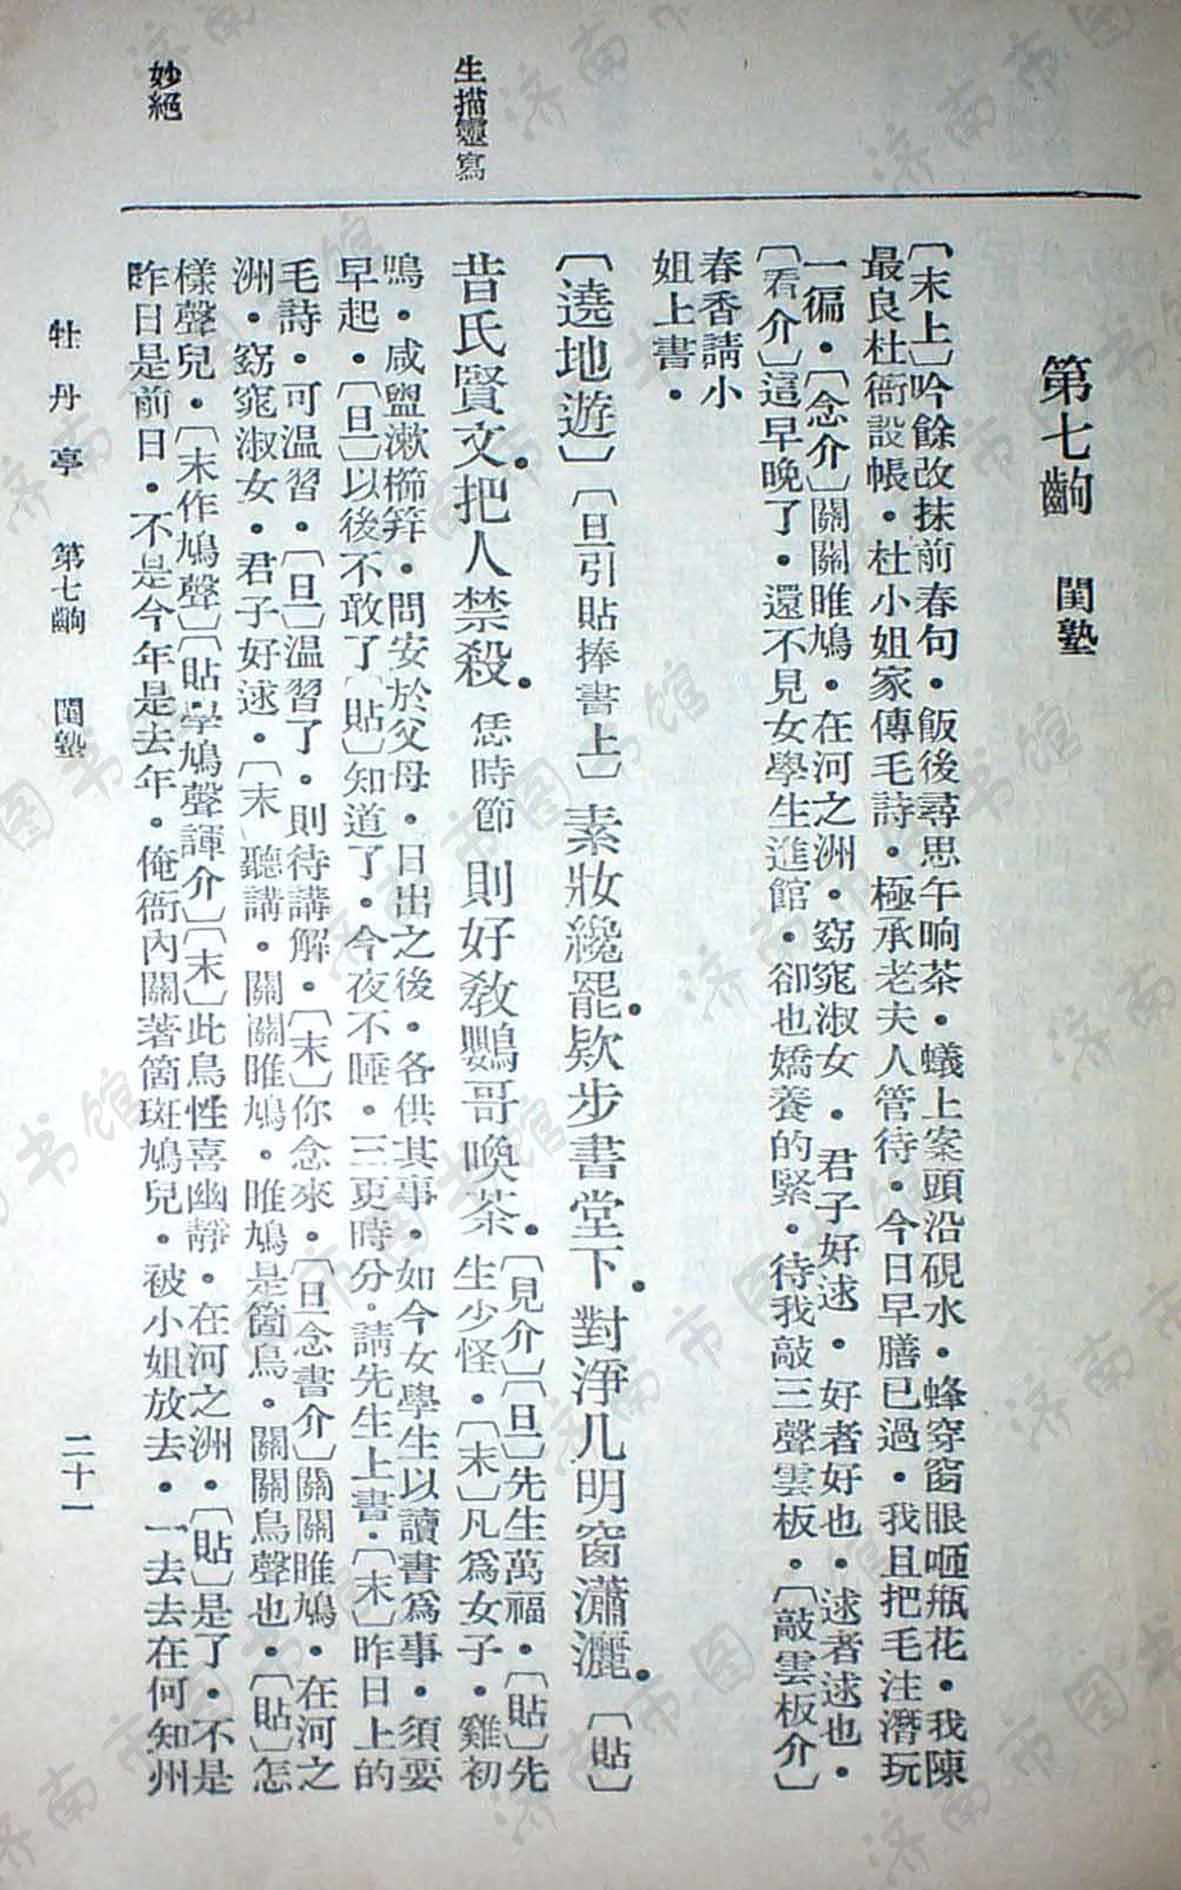 第七齣　閨塾
〔末上〕吟餘改抹前春句・飯後尋思午晌茶・蟻上案頭沿硯水・蜂穿窗眼咂瓶花・我陳
最良杜衙設帳・杜小姐家傳毛詩・極承老夫人管待・今日早膳已過・我且把毛注潛玩
一徧・〔念介〕關關雎鳩・在河之洲・窈窕淑女・君子好逑・好者好也・逑者逑也・
〔看介〕這早晚了・還不見女學生進館・卻也嬌養的緊・待我敲三聲雲板・〔敲雲板介〕
春香請小
姐上書・
〔遶地遊〕〔旦引貼捧書上〕素妝纔罷・欵步書堂下・對淨几明窗瀟灑・〔貼〕
昔氏賢文・把人禁殺・恁時節則好敎鸚哥喚茶・〔見介〕〔旦〕先生萬福・〔貼〕先
生少怪・〔末〕凡爲女子・雞初
鳴・咸盥漱櫛笄・問安於父母・日出之後・各供其事・如今女學生以讀書爲事・須要
早起・〔旦〕以後不敢了〔貼〕知道了・今夜不睡・三更時分・請先生上書・〔末〕昨日上的
毛詩・可温習・〔旦〕温習了・則待講解・〔末〕你念來・〔旦念書介〕關關雎鳩・在河之
洲・窈窕淑女・君子好逑・〔末〕聽講・關關雎鳩・雎鳩是箇鳥・關關鳥聲也・〔貼〕怎
樣聲兒・〔末作鳩聲〕〔貼學鳩聲諢介〕〔末〕此鳥性喜幽靜・在河之洲・〔貼〕是了・不是
昨日是前日・不是今年是去年・俺衙內關著箇斑鳩兒・被小姐放去・一去去在何知州
生描靈寫
妙絕
牡丹亭　第七齣　閨塾　二十一
济南市图书馆